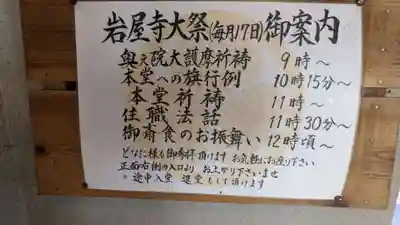 岩屋寺大祭(毎月17日)御案内
奥之院大護摩祈祷 9時〜
本堂への旗行例 10時15分〜
本堂祈祷 11時〜
住職法話 11時30分〜
御斎食のお振舞い 12時頃〜
どなた様も御参拝頂けます お気軽にお座り下さい
正面右側の入口より お上がり下さいませ
※ 途中入堂 退堂もして頂けます